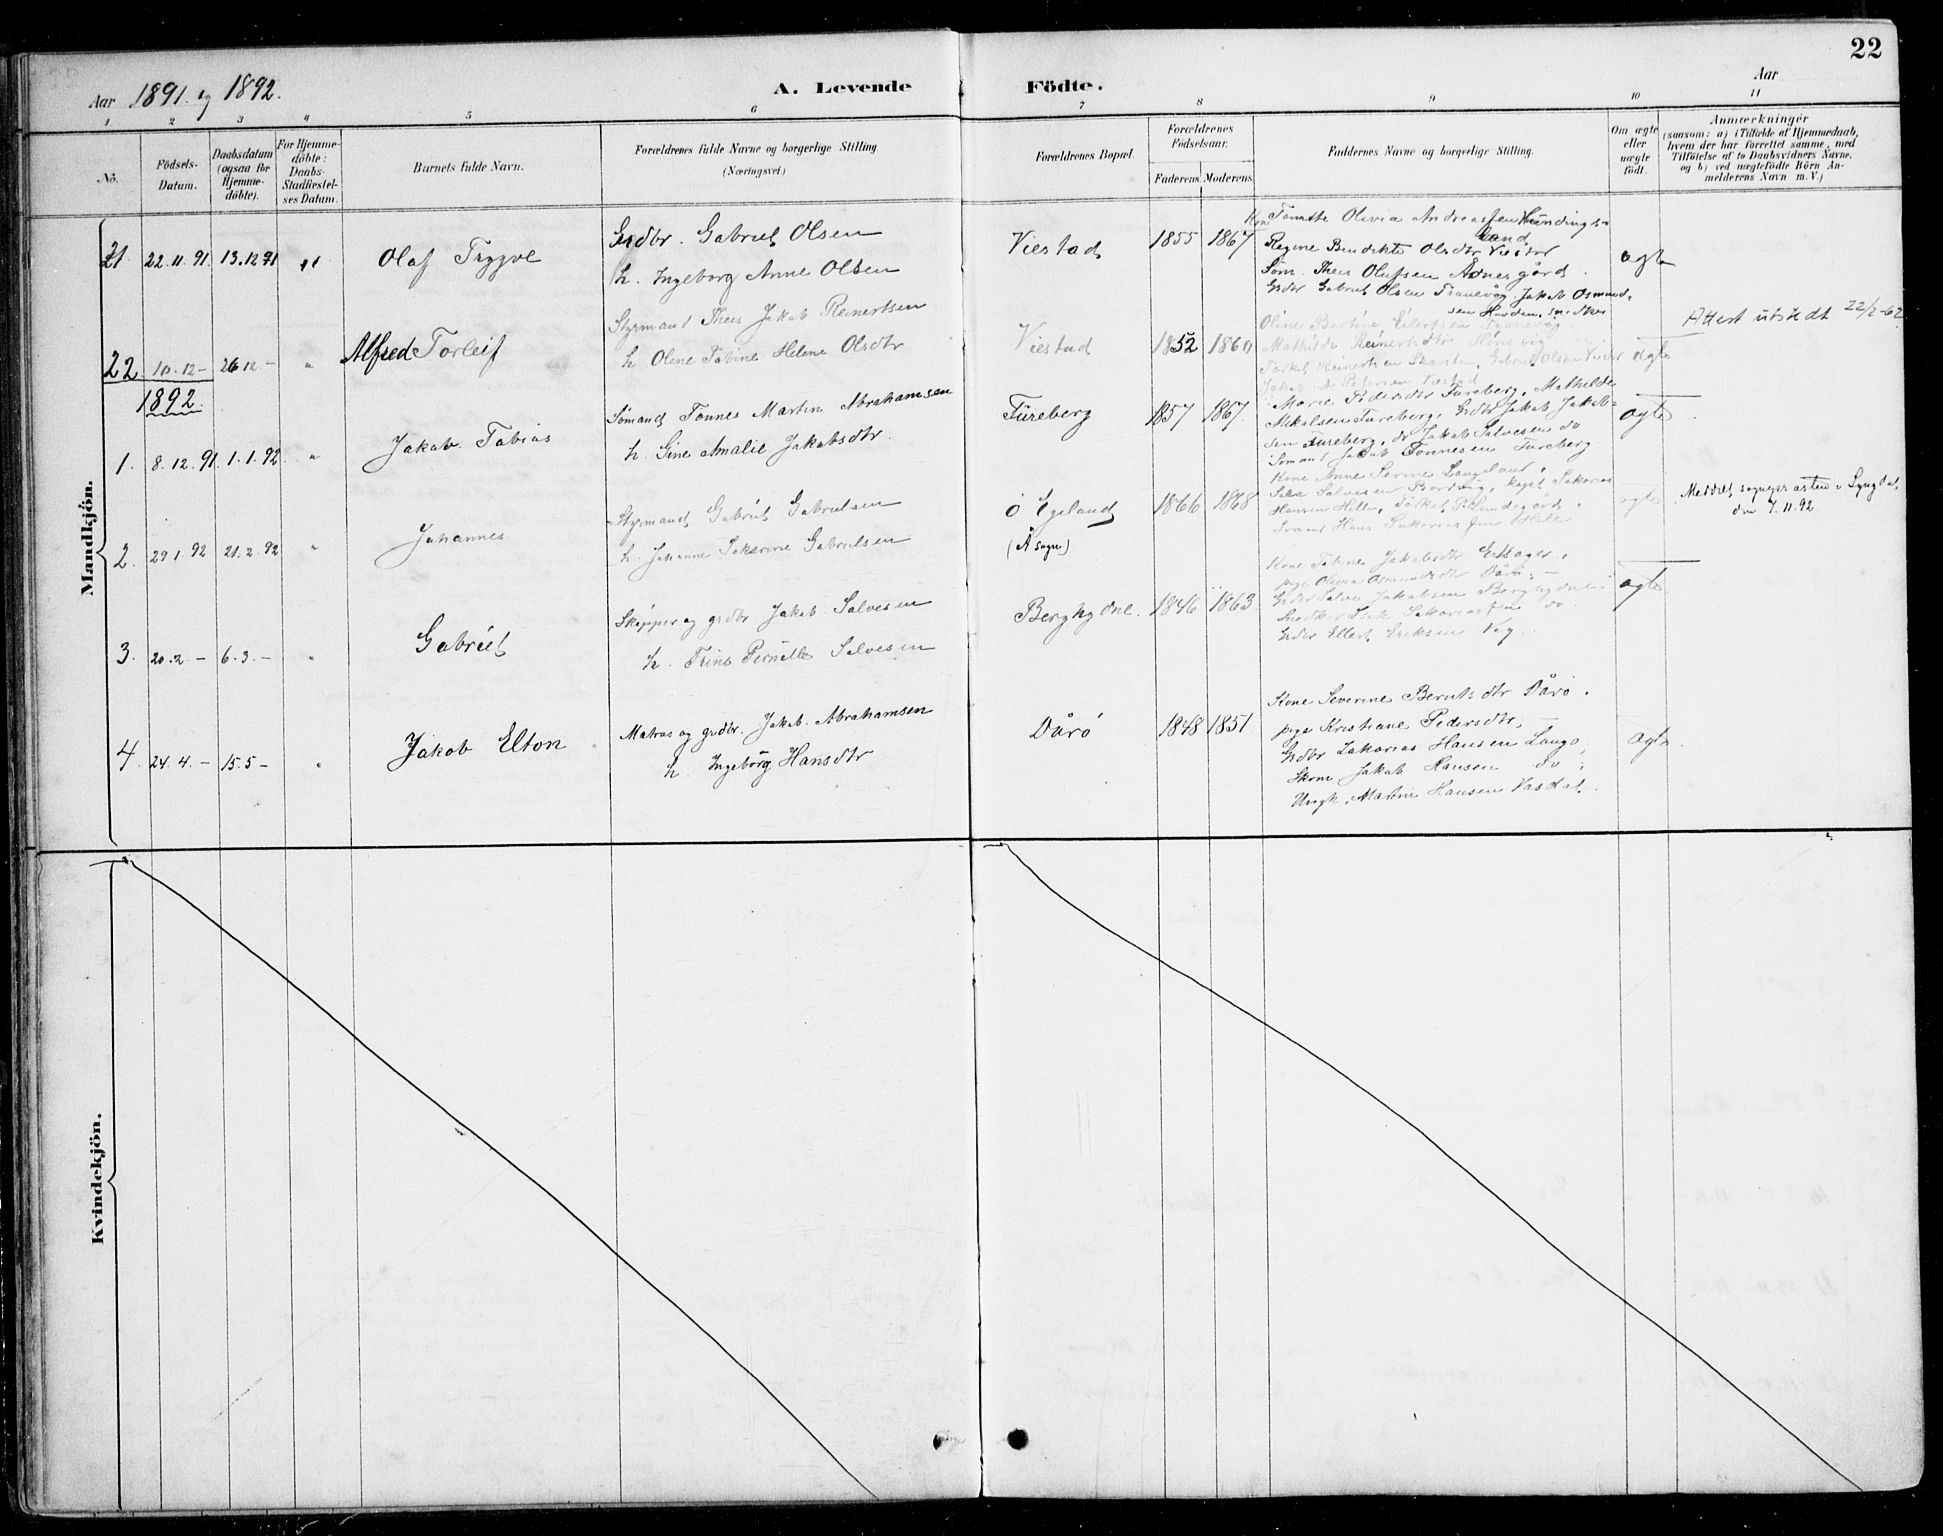 22
Aar 1891. og 1892.
A. Levende Födte.
Aar
1 2 3 4 5 6 7 8 9 10 11
No.
Födsels-Datum.
Daabsdatum (ogsaa för Hjemme-döbte).
For Hjemme-döbte: Daabs-Stadfæstel-ses Datum.
Barnets fulde Navn.
Forældrenes fulde Navne og borgerlige Stilling (Næringsvei)
Forældrenes Bopæl.
Forældrenes Födselsaar.
Faderens. Moderens.
Faddernes Navne og borgerlige Stilling.
Om ægte eller uægte födt.
Anmærkninger
(saasom: a) i Tilfælde af Hjemmedaab,
hvem der har forrettet samme, med
Tilföielse af to Daabsvidners Navne,
og b) ved uægtefödte Börn An-
melderens Navn m. V.)
Mandkjön.
21 22.11.91. 13.12.91 " Olaf Trygve
Grdbr. Gabriel Olsen
h. Ingeborg Anne Olsen
Viestad 1855 1867
Kone Tomathe Olivia Andreassen Hundings-
land
Regine Bendikte Olsdtr Viestad
Søm. Theis Olufsen Ådnesgård.
Grdbr Gabriel Olsen Tranevåg. Jakob Osmund-
sen Hovden, snedker
ægte
22. 10.12 - 26.12 - " Alfred Torleif
Styrmand Theis Jakob Reinertsen
h. Oline Tobine Helene Olsdtr
Viestad 1852 1860
Oline Bertine Eilertsen Tranevåg
Mathilde Reinertsdtr
Torkel Reinertsen Skarstein, Gabriel Olsen Viestad
Jakob A Petersen Viestad
ægte
Attest utstedt 22/2-62
1892.
1. 8.12.91. 1.1.92 " Jakob Tobias
Sømand Tønnes Martin Abrahamsen
h. Gine Amalie Jakobsdtr.
Fureberg 1857 1867.
Marie Pedersdtr Fureberg, Mathilde
Mikalsen Fureberg, Grdbr Jakob Jakob-
sen Fureberg, do Jakob Salvesen do
Sømand Jakob Tønnesen Fureberg.
ægte
2. 29.1.92 21.2.92 " Johannes
Styrmand Gabriel Gabrielsen
h. Johanne Sakarine Gabrielsen
Ö Egeland
(Å sogn)
1866 1868
Kone Anne Serine Langeland,
Salve Salvesen kapt. Sakarias
Hansen Hille, Torkel P. Lundegård,
Sømand Hans Sakariassen Hille
ægte
Meddelt sognepræsten i Lyngdal,
den 7.11.92
3. 20.2. - 6.3. - " Gabriel
Skipper og grdbr Jakob Salvesen
h. Trine Pernille Salvesen
Berghydne. 1846 1863.
Kone Tobine Jakobsdtr
pige Olivia Osmundsdtr Dårø; -
Grdbr Salve Jakobsen Berghydne
Snedker Isak Sakariassen do
Grdbr Ellert Eriksen Vig.
ægte
4. 24.4. - 15.5 - " Jakob Elton
Matros og grdbr. Jakob Abrahamsen
h. Ingeborg Hansdtr
Dårø 1848 1851
Kone Severine Berntsdtr Dårø.
pige Kristiane Pedersdtr, -
Grdbr Zakarias Hansen Langø,
Skom. Jakob Hansen do;
Ungk. Martin Hansen Vasdal.
ægte.
Kvindekjön.